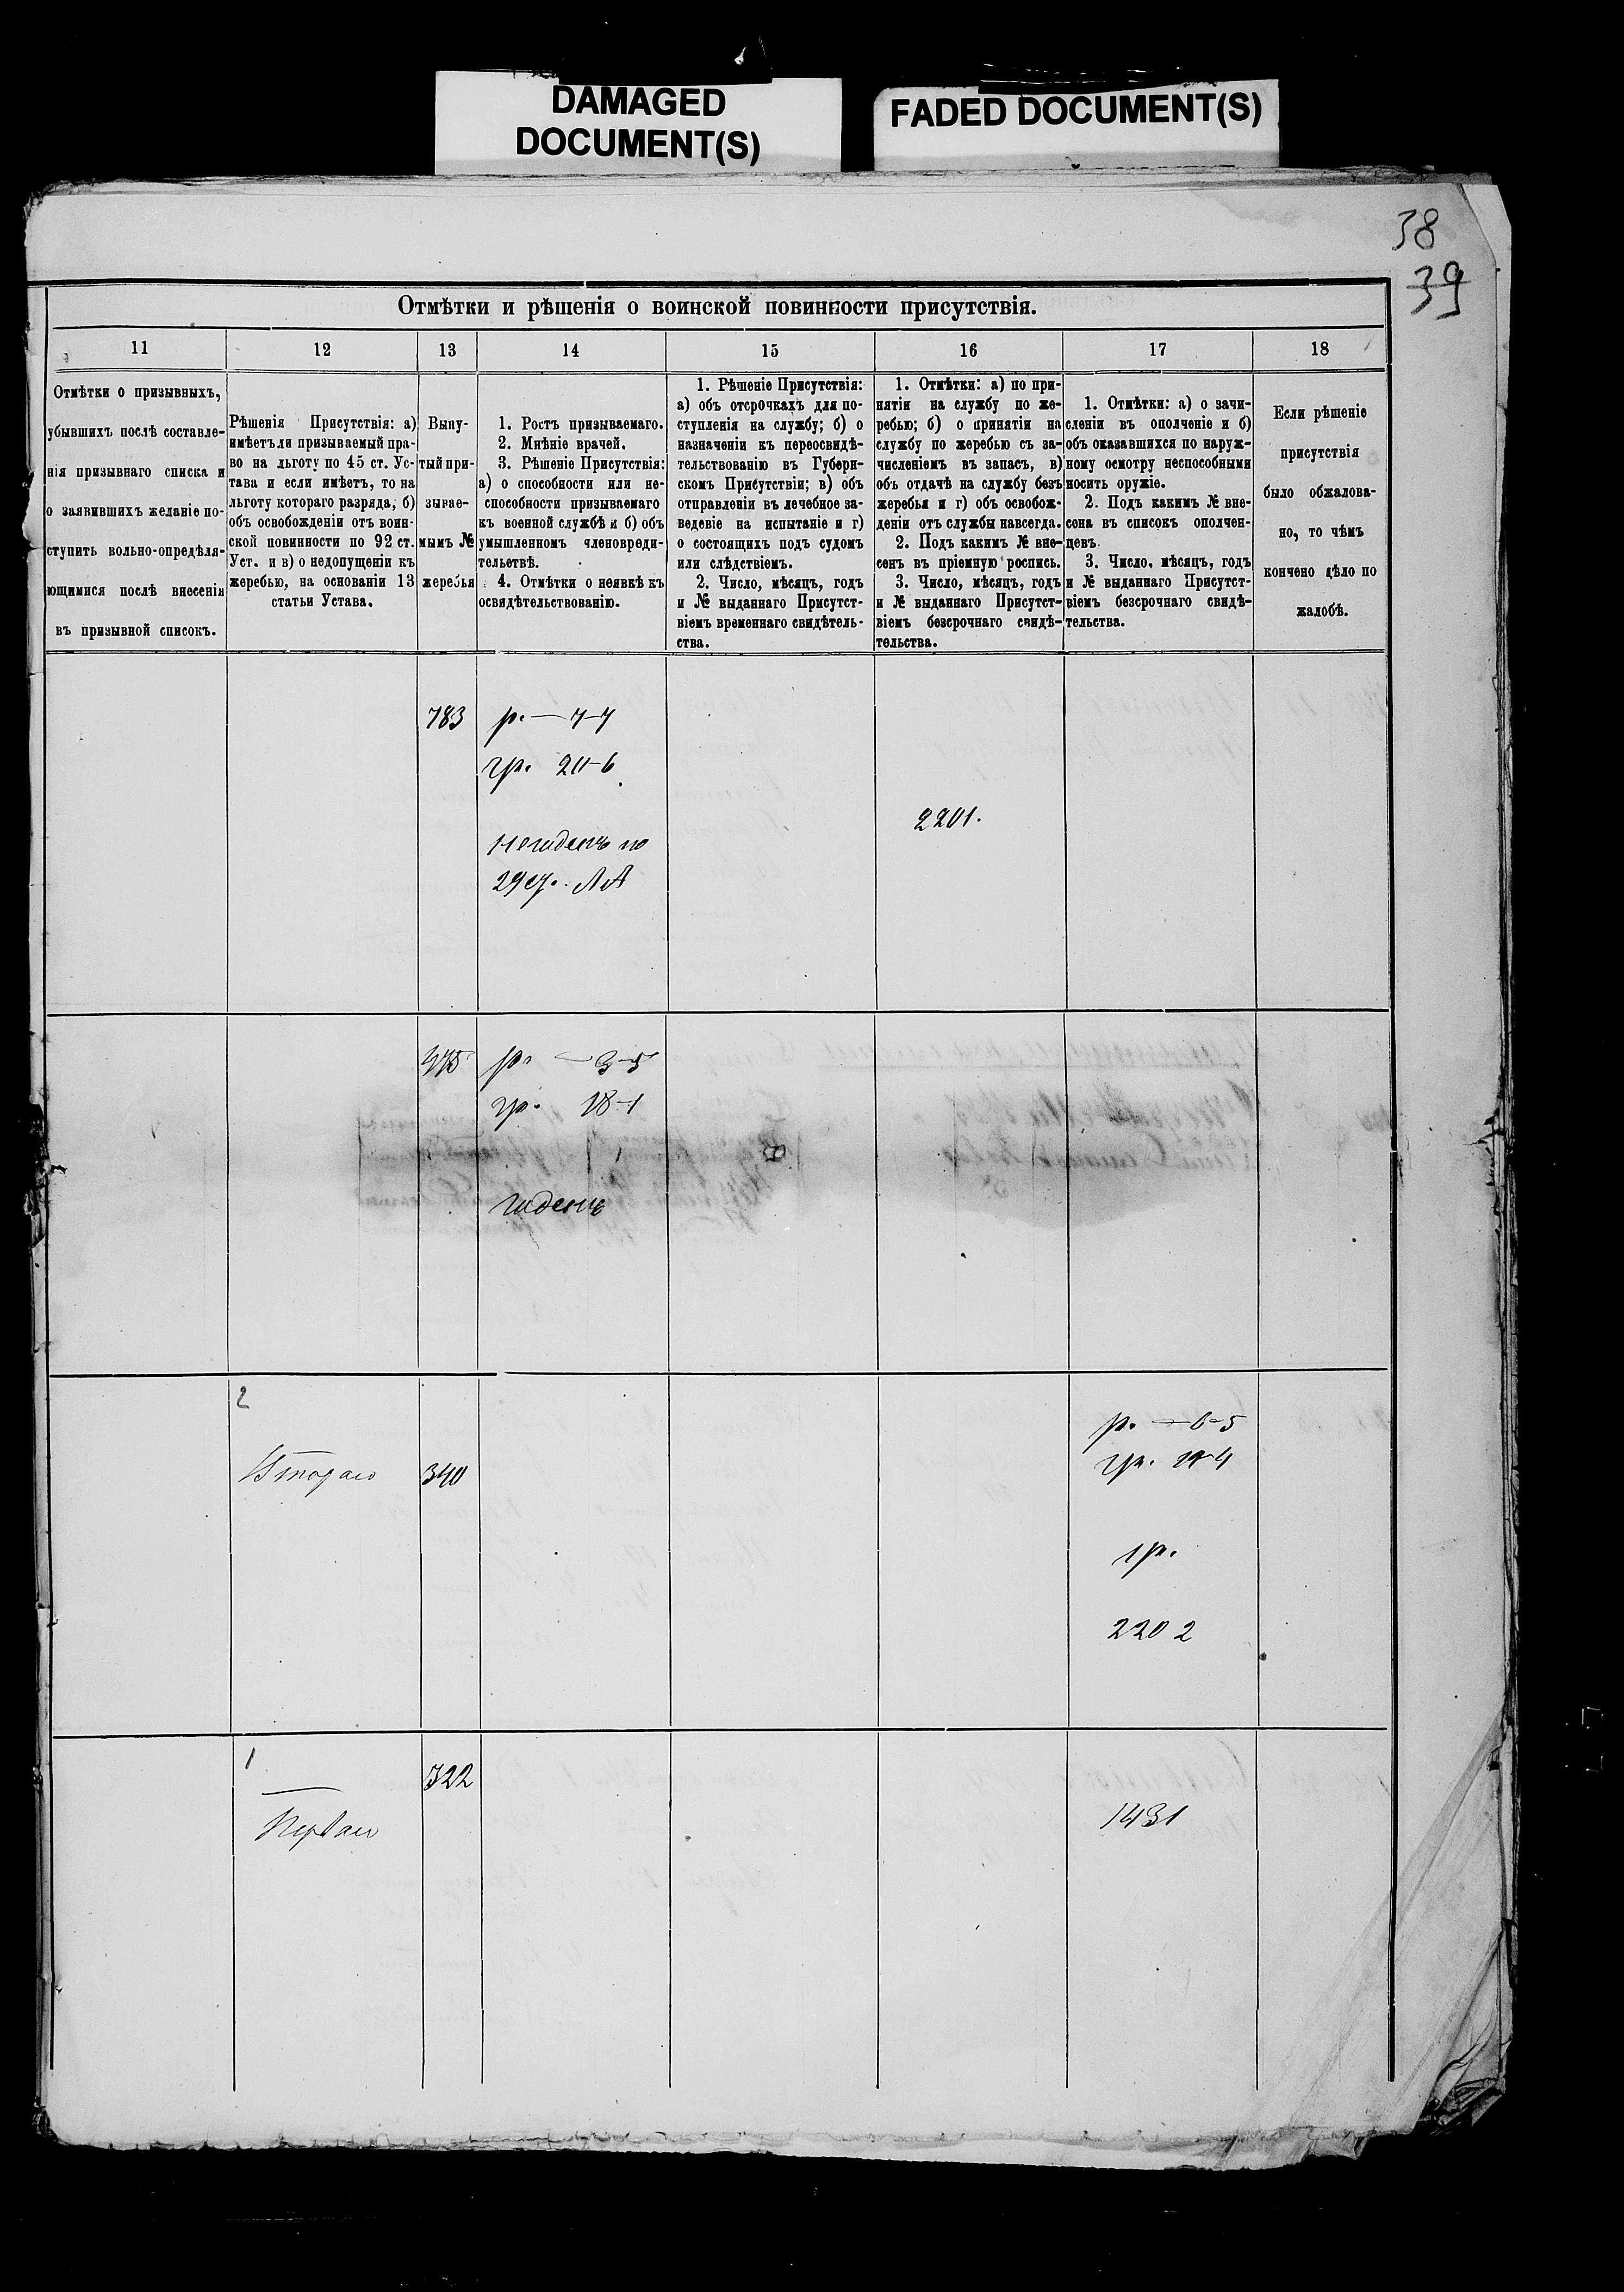 DAMAGED
DOCUMENT(S)
FADED DOCUMENT(S)
38
39
Отмѣтки и рѣшенія о воинской повинности присутствія.
11
12
13
14
15
16
17
18
Отмѣтки о призывныхъ,
убывшихъ послѣ составле-
нія призывнаго списка и
о заявившихъ желаніе по-
ступить вольно-опредѣля-
ющимися послѣ внесенія
въ призывной списокъ.
Рѣшенія Присутствія: а)
имѣетъ ли призываемый пра-
во на льготу по 45 ст. Ус-
тава и если имѣетъ, то на
льготу котораго разряда; б)
объ освобожденіи отъ воин-
ской повинности по 92 ст.
Уст. и в) о недопущеніи къ
жеребью, на основаніи 13
статьи Устава.
Выну-
тый при-
зывае-
мымъ №
жеребья
1. Ростъ призываемаго.
2. Мнѣніе врачей.
3. Рѣшеніе Присутствія:
а) о способности или не-
способности призываемаго
къ военной службѣ и б) объ
умышленномъ членовреди-
тельствѣ.
4. Отмѣтки о неявкѣ къ
освидѣтельствованію.
1. Рѣшеніе Присутствія:
а) объ отсрочкахъ для по-
ступленія на службу; б) о
назначеніи къ переосвидѣ-
тельствованію въ Губерн-
скомъ Присутствіи; в) объ
отправленіи въ лечебное за-
веденіе на испытаніе и г)
о состоящихъ подъ судомъ
или слѣдствіемъ.
2. Число, мѣсяцъ, годъ
и № выданнаго Присутст-
віемъ временнаго свидѣтель-
ства.
1. Отмѣтки: а) по при-
нятіи на службу по же-
ребью; б) о принятіи на
службу по жеребью съ за-
численіемъ въ запасъ, в)
объ отдачѣ на службу безъ
жеребья и г) объ освобож-
деніи отъ службы навсегда.
2. Подъ какимъ № вне-
сенъ въ пріемную роспись.
3. Число, мѣсяцъ, годъ
и № выданнаго Присутст-
віемъ безсрочнаго свидѣ-
тельства.
1. Отмѣтки: а) о зачи-
сленіи въ ополченіе и б)
объ оказавшихся по наруж-
ному осмотру неспособными
носить оружіе.
2. Подъ какимъ № вне-
сена въ списокъ ополчен-
цевъ.
3. Число, мѣсяцъ, годъ
и № выданнаго Присутст-
віемъ безсрочнаго свидѣ-
тельства.
Если рѣшеніе
присутствія
было обжалова-
но, то чѣмъ
кончено дѣло по
жалобѣ.
783
р. — 4-4
гр. 20-6
Негоденъ по
2201.
375
р. — 3-5
гр. 18-1
годенъ
2
Втораго
340
р. — 6-5
гр.
гр.
2202
1
Перваго
322
1431